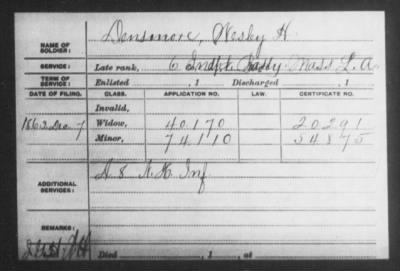 NAME OF SOLDIER: Densmore, Wesley H.
SERVICE: Late rank, 6 Ind. Batty. Mass L. A.
TERM OF SERVICE: Enlisted , 1 Discharged , 1
DATE OF FILING. CLASS. APPLICATION NO. LAW. CERTIFICATE NO.
Invalid,
1863 Dec 7 Widow, 40170 20291
Minor, 74110 54875
ADDITIONAL SERVICES: N.H. Inf
REMARKS:
Died , 1 , at